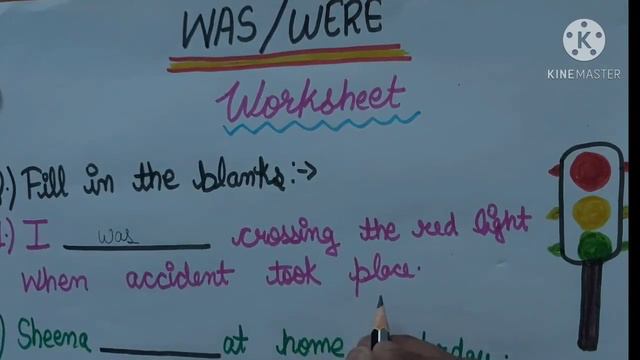 WAS/WERE
KINEMASTER
Worksheet
Fill in the blanks:->
I was crossing the red light
when accident took place.
Sheena ______ at home